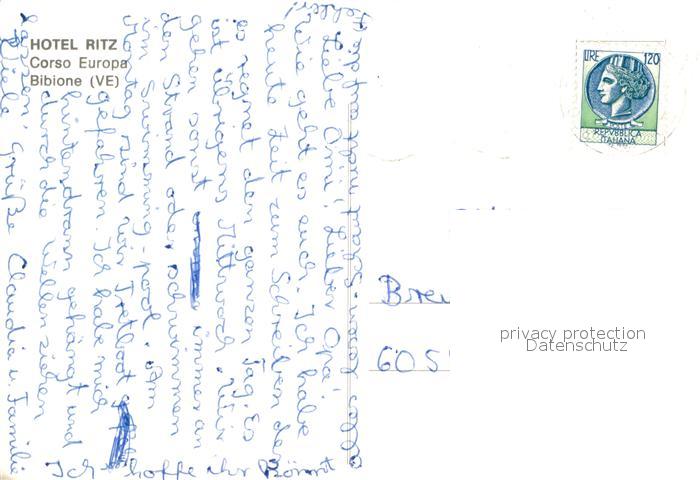 HOTEL RITZ
Corso Europa
Bibione (VE)
LIRE 120
REPVBBLICA
ITALIANA
Liebe Omi! Lieber Opa!
Wie geht es euch. Ich habe
heute Zeit zum Schreiben den
es regnet den ganzen Tag. Es
ist übrigens Mittwoch. Wir
gehen sonst immer an
den Strand oder schwimmen
im Swimming-pool. Am
Montag sind wir Tretboot
gefahren. Ich habe mich
hintendrann gehängt und
durch die Wellen ziehen
lassen. Viele Grüße Claudia u. Familie
Ich hoffe ihr könnt
Brei
605
privacy protection
Datenschutz